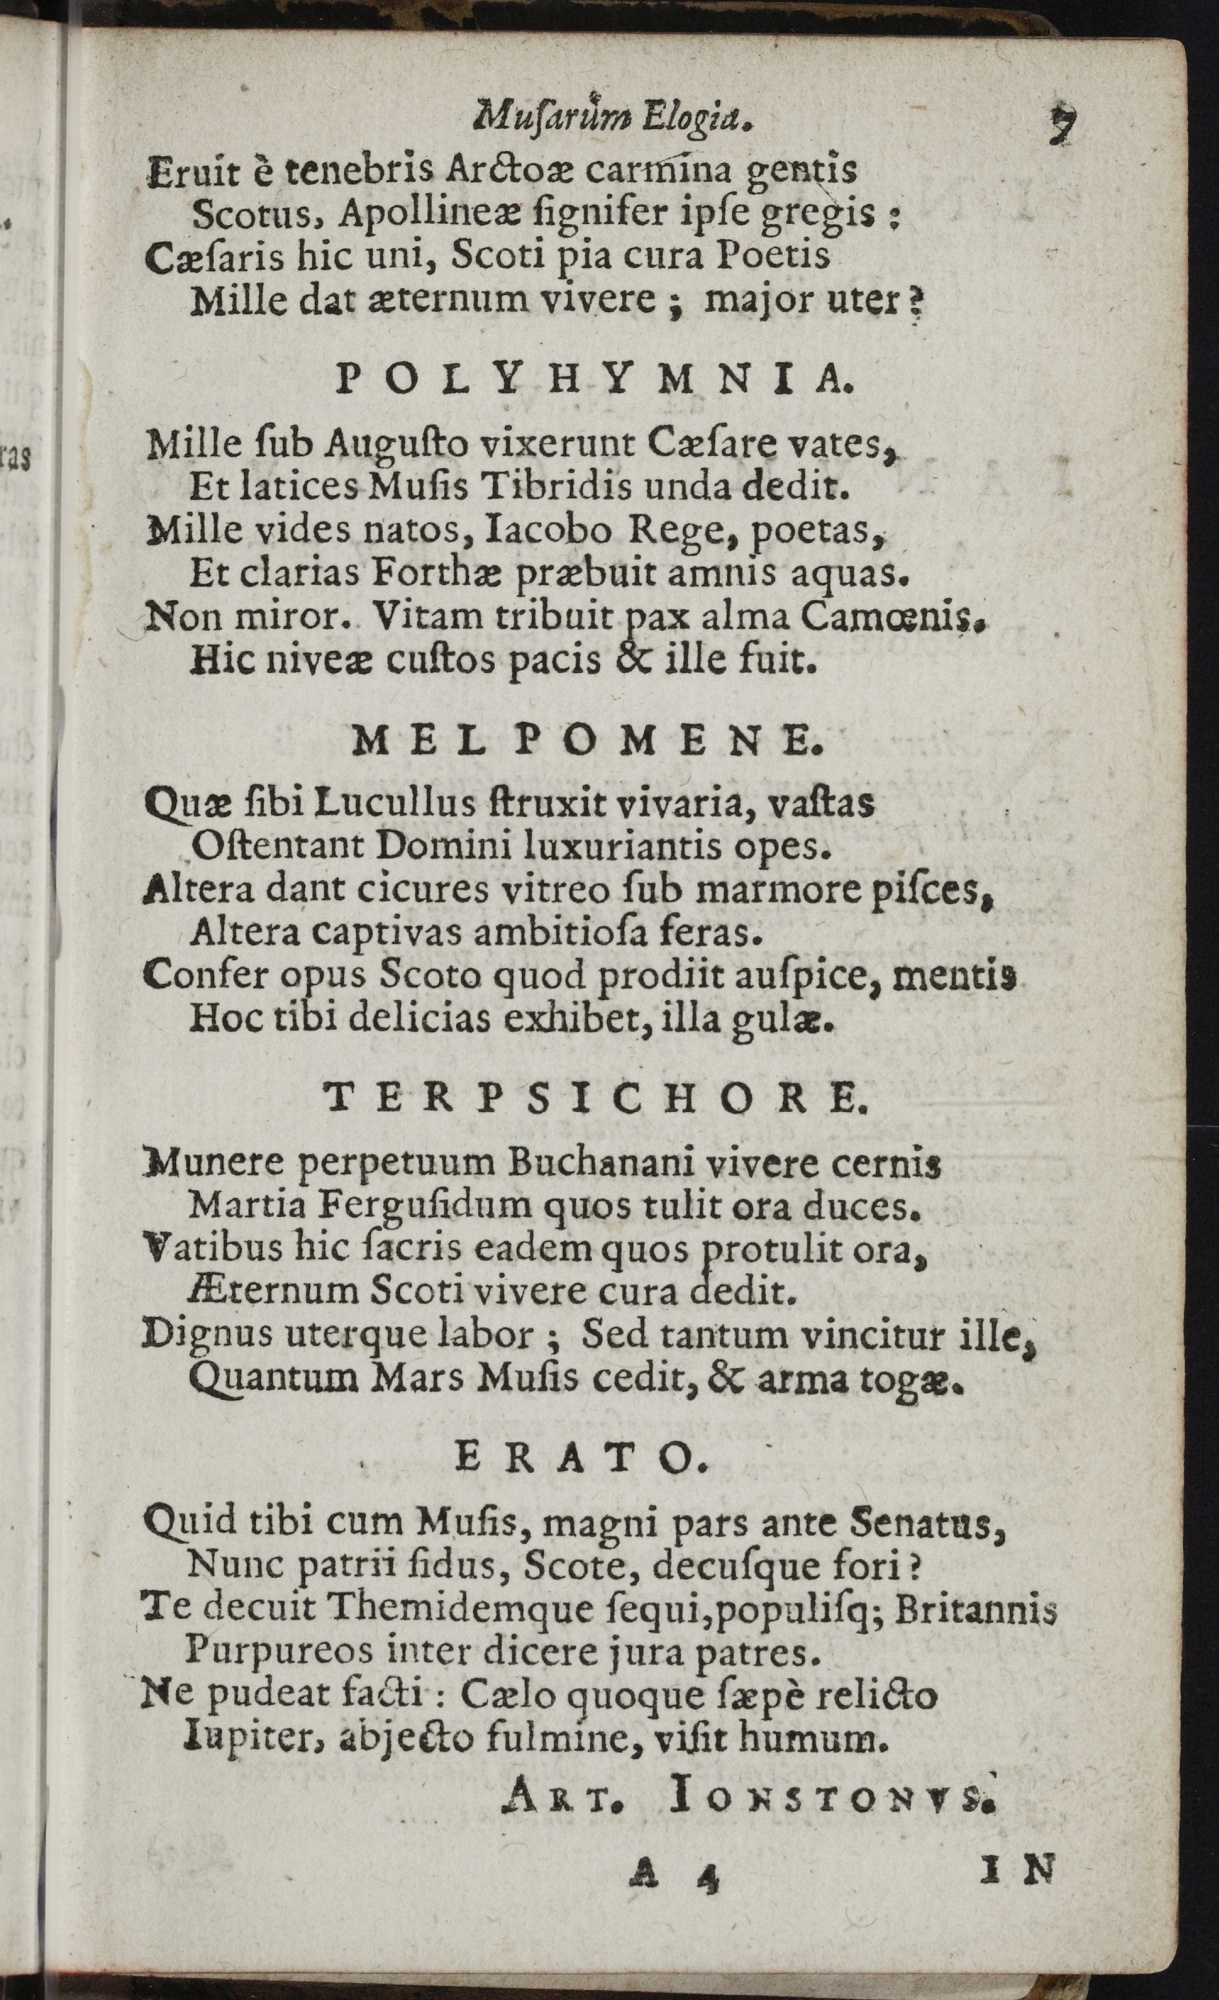 Muſarum Elogia. 7
Eruit è tenebris Arctoæ carmina gentis
Scotus, Apollineæ ſignifer ipſe gregis :
Cæſaris hic uni, Scoti pia cura Poetis
Mille dat æternum vivere ; major uter?
POLYHYMNIA.
Mille ſub Auguſto vixerunt Cæſare vates,
Et latices Muſis Tibridis unda dedit.
Mille vides natos, Iacobo Rege, poetas,
Et clarias Forthæ præbuit amnis aquas.
Non miror. Vitam tribuit pax alma Camœnis.
Hic niveæ cuſtos pacis & ille fuit.
MELPOMENE.
Quæ ſibi Lucullus ſtruxit vivaria, vaſtas
Oſtentant Domini luxuriantis opes.
Altera dant cicures vitreo ſub marmore piſces,
Altera captivas ambitioſa feras.
Confer opus Scoto quod prodiit auſpice, mentis
Hoc tibi delicias exhibet, illa gulæ.
TERPSICHORE.
Munere perpetuum Buchanani vivere cernis
Martia Ferguſidum quos tulit ora duces.
Vatibus hic ſacris eadem quos protulit ora,
Æternum Scoti vivere cura dedit.
Dignus uterque labor ; Sed tantum vincitur ille,
Quantum Mars Muſis cedit, & arma togæ.
ERATO.
Quid tibi cum Muſis, magni pars ante Senatus,
Nunc patrii ſidus, Scote, decuſque fori?
Te decuit Themidemque ſequi,populiſq; Britannis
Purpureos inter dicere jura patres.
Ne pudeat facti : Cælo quoque ſæpè relicto
Iupiter, abjecto fulmine, viſit humum.
ART. IONSTONVS.
A 4 IN
ras